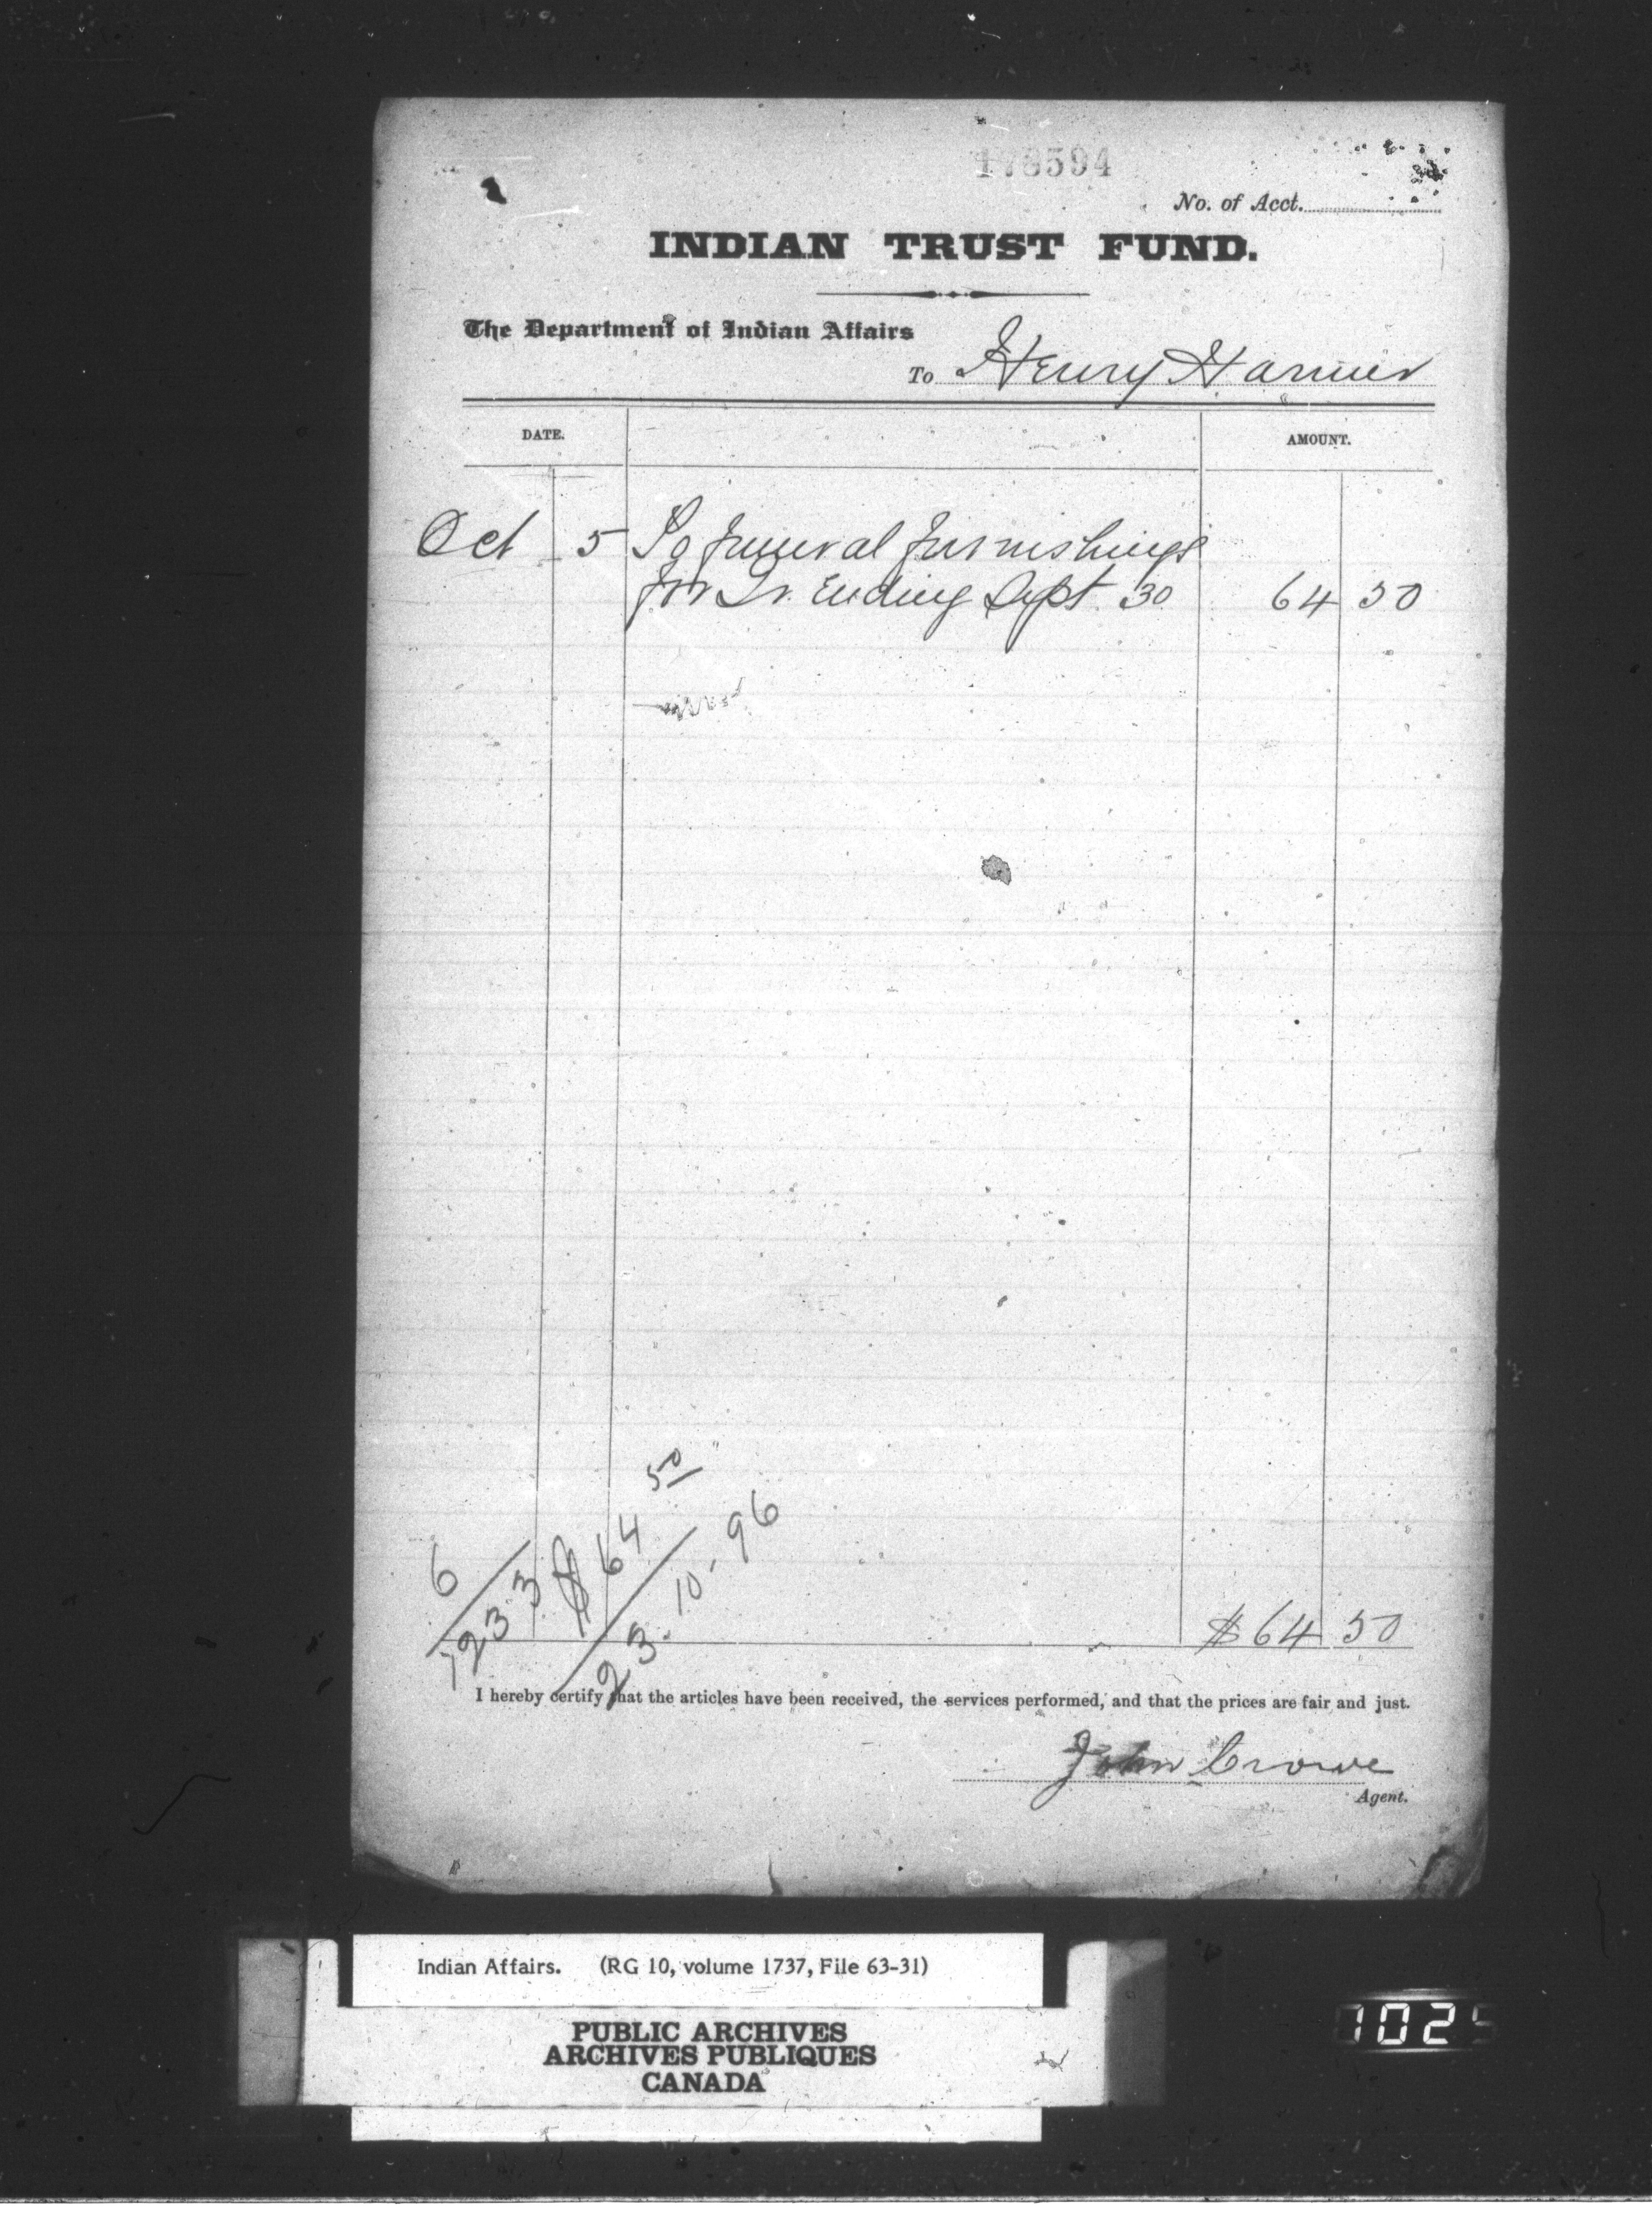 178594
No. of Acct.
INDIAN TRUST FUND.
The Department of Indian Affairs
To Henry Harmer
DATE. AMOUNT.
Oct 5 To funeral furnishings
for Qr. Ending Sept. 30 64 50
6
1233 $64 50
23.10-96
$64 50
I hereby certify that the articles have been received, the services performed, and that the prices are fair and just.
John Crowe
Agent.
Indian Affairs. (RG 10, volume 1737, File 63-31)
PUBLIC ARCHIVES
ARCHIVES PUBLIQUES
CANADA
1025